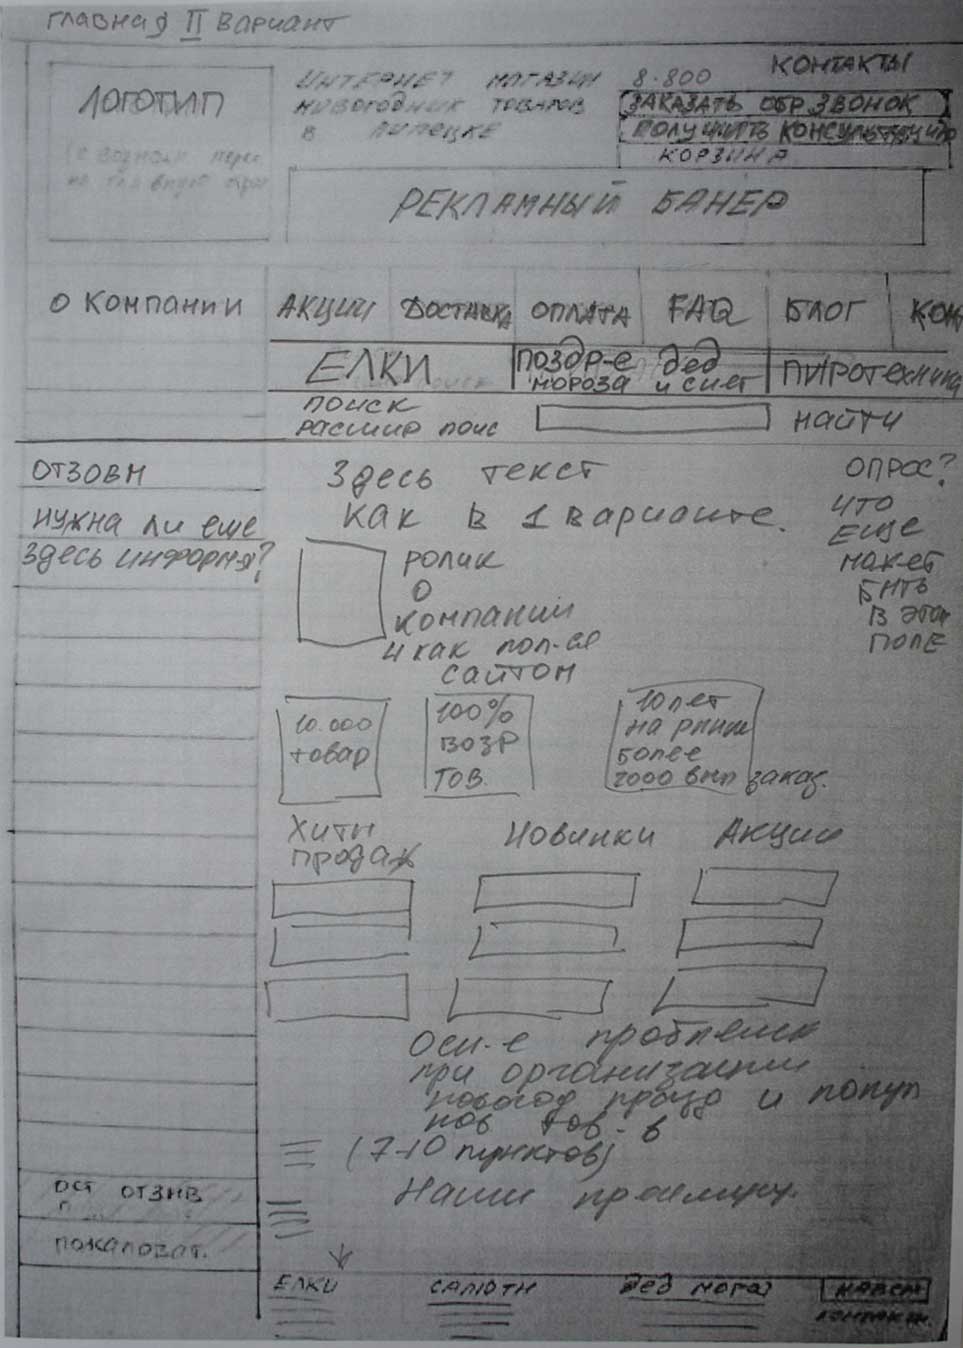 главная II вариант
ЛОГОТИП
ИНТЕРНЕТ МАГАЗИН
НОВОГОДНИХ ТОВАРОВ
В ЛИПЕЦКЕ
8-800
КОНТАКТЫ
ЗАКАЗАТЬ ОБР ЗВОНОК
ПОЛУЧИТЬ КОНСУЛЬТАЦИЮ
КОРЗИНА
РЕКЛАМНЫЙ БАНЕР
О КОМПАНИИ
АКЦИИ
ДОСТАВКА
ОПЛАТА
FAQ
БЛОГ
КОН
ЕЛКИ
ПОЗДР-Е ДЕД
МОРОЗА И СНЕГ
ПИРОТЕХНИКА
ПОИСК
РАСШИР ПОИС
НАЙТИ
ОТЗОВЫ
НУЖНА ЛИ ЕЩЕ
ЗДЕСЬ ИНФОРМ-Я?
Здесь текст
как в 1 варианте.
РОЛИК
О
КОМПАНИИ
и как пол-ся
сайтом
ОПРОС?
ЧТО
ЕЩЕ
МОЖЕТ
БЫТЬ
В ЭТОМ
ПОЛЕ
10.000
товар
100%
ВОЗР
ТОВ.
10 лет
на рынке
более
7000 вып заказ.
Хиты
продаж
Новинки
Акции
Осн-е проблемы
при организации
новогод празд и покуп
нов тов-в
(7-10 пунктов)
Наши преимущ.
ОСТ ОТЗЫВ
ПОЖАЛОВАТ.
ЕЛКИ
САЛЮТЫ
ДЕД МОРОЗ